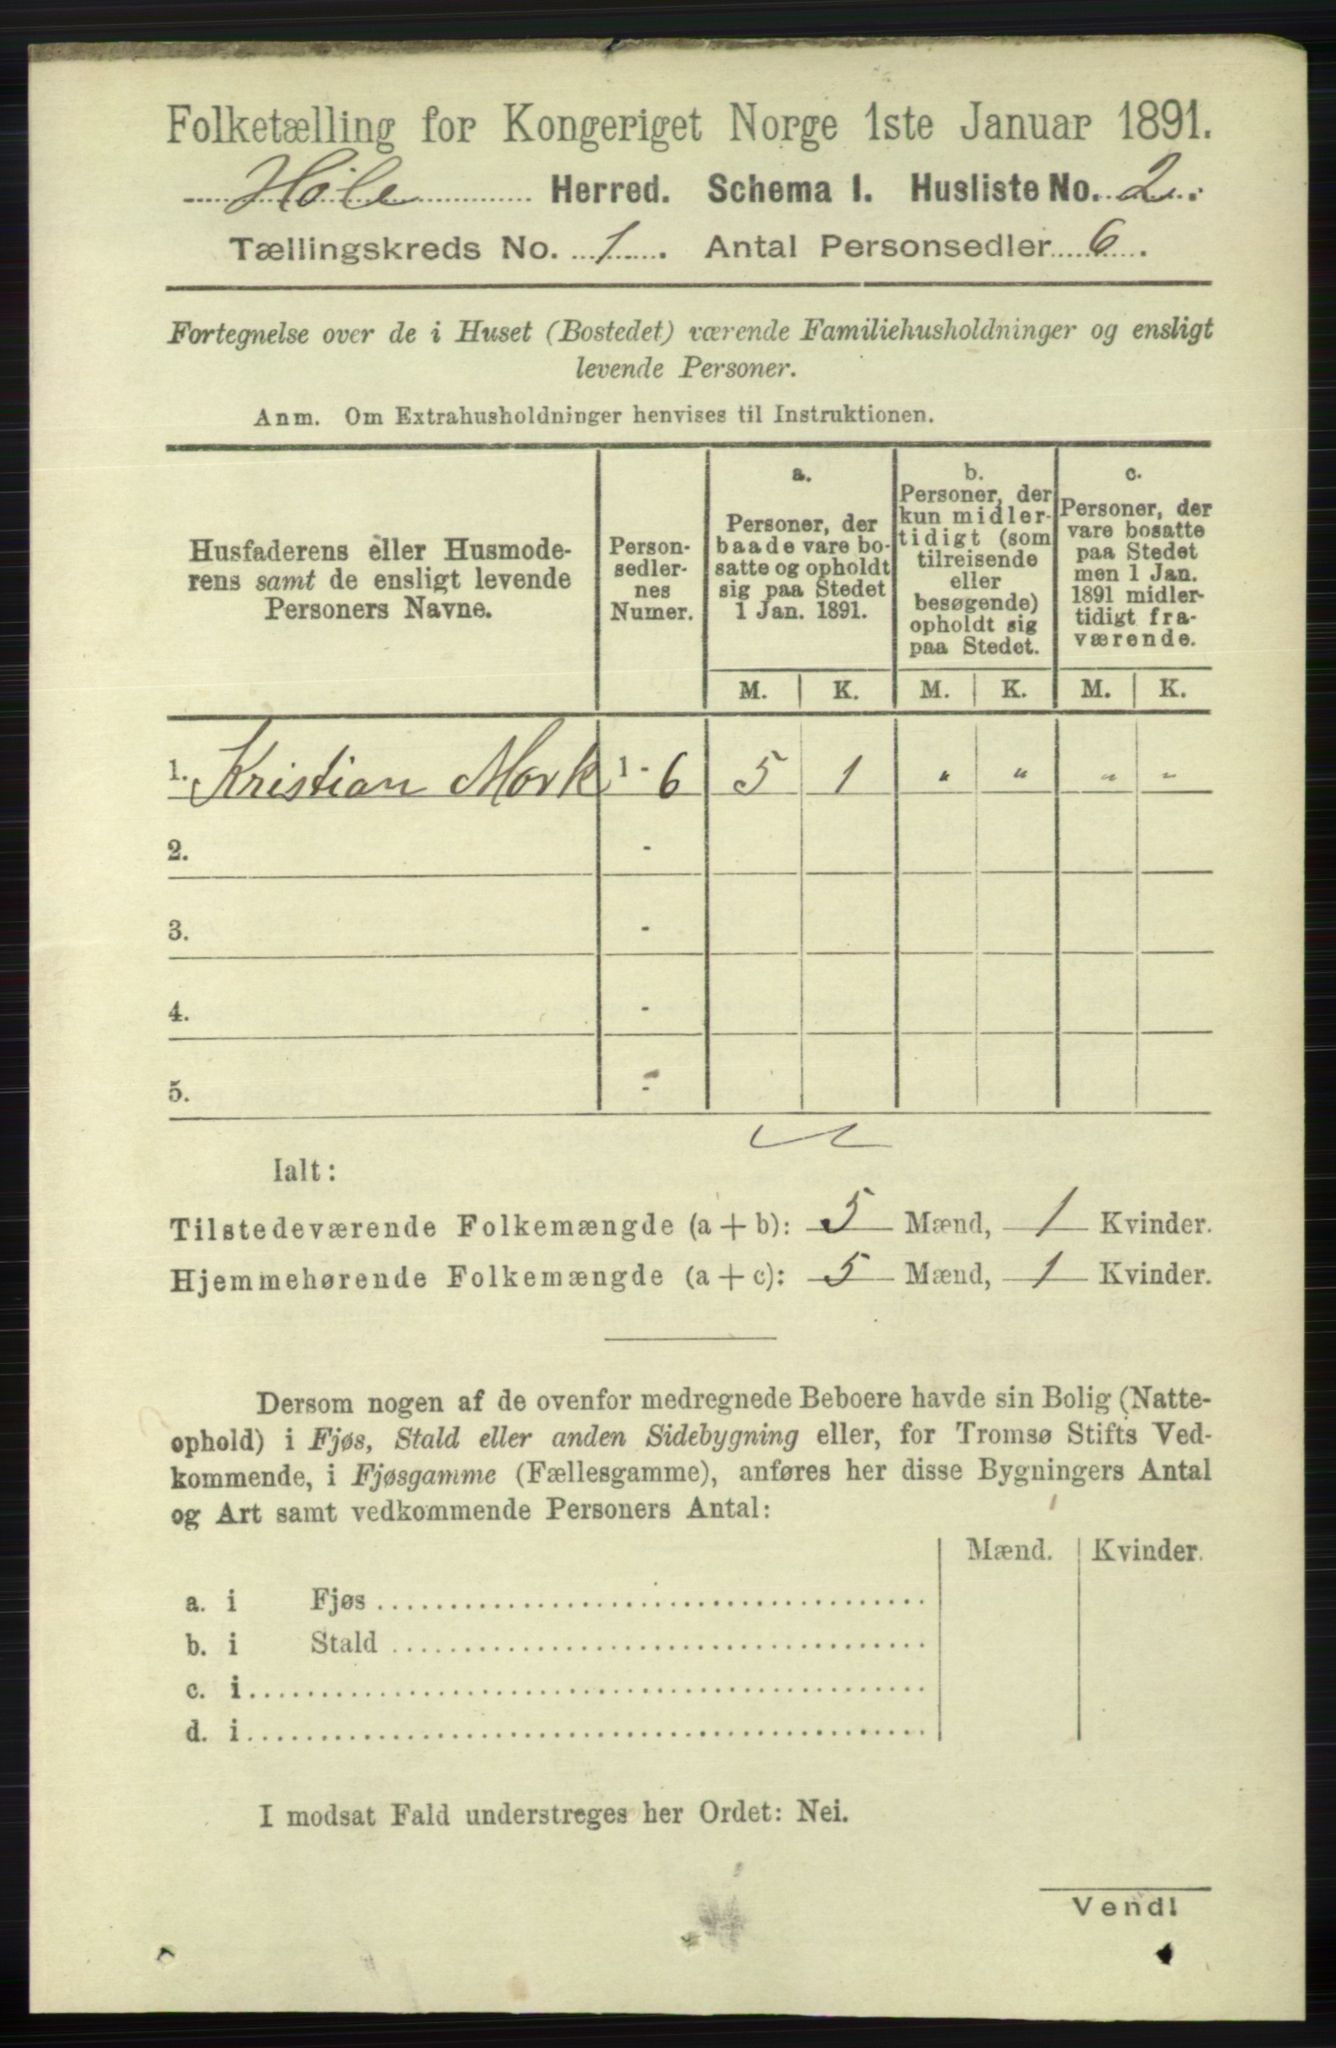 Folketælling for Kongeriget Norge 1ste Januar 1891.
Høle Herred. Schema 1. Husliste No. 2.
Tællingskreds No. 1. Antal Personsedler 6.
Fortegnelse over de i Huset (Bostedet) værende Familiehusholdninger og ensligt
levende Personer.
Anm. Om Extrahusholdninger henvises til Instruktionen.
Husfaderens eller Husmode-
rens samt de ensligt levende
Personers Navne.
Person-
sedler-
nes
Numer.
a.
Personer, der
baade vare bo-
satte og opholdt
sig paa Stedet
1 Jan. 1891.
b.
Personer, der
kun midler-
tidigt (som
tilreisende
eller
besøgende)
opholdt sig
paa Stedet.
c.
Personer, der
vare bosatte
paa Stedet
men 1 Jan.
1891 midler-
tidigt fra-
værende.
M. K. M. K. M. K.
1. Kristian Mork 1 - 6 5 1 " " " "
2. -
3. -
4. -
5. -
Ialt:
Tilstedeværende Folkemængde (a + b): 5 Mænd, 1 Kvinder.
Hjemmehørende Folkemængde (a + c): 5 Mænd, 1 Kvinder.
Dersom nogen af de ovenfor medregnede Beboere havde sin Bolig (Natte-
ophold) i Fjøs, Stald eller anden Sidebygning eller, for Tromsø Stifts Ved-
kommende, i Fjøsgamme (Fællesgamme), anføres her disse Bygningers Antal
og Art samt vedkommende Personers Antal:
Mænd. Kvinder.
a. i Fjøs
b. i Stald
c. i
d. i
I modsat Fald understreges her Ordet: Nei.
Vend!